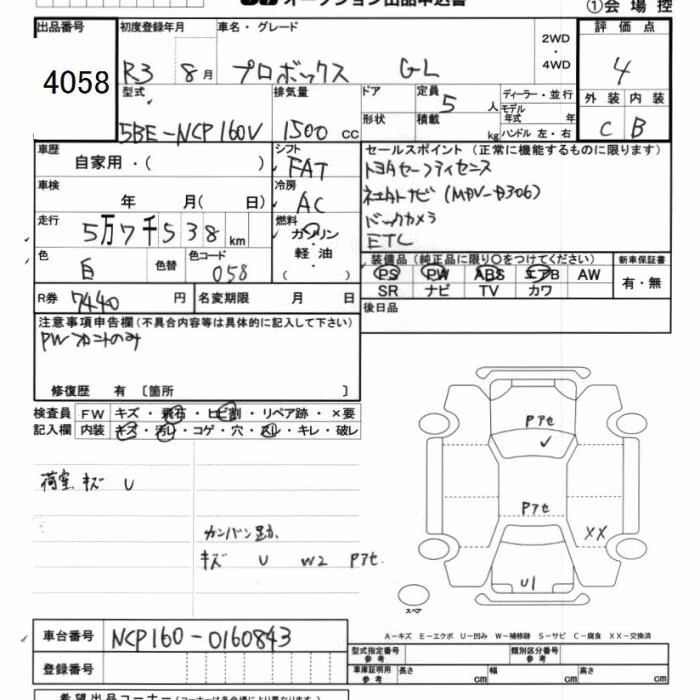 オークション出品申込書
①会場控
出品番号 初度登録年月 車名・グレード 2WD ・ 4WD 評価点
4058 R3 8月 プロボックス GL 4
型式 排気量 ドア 定員 5人 ディーラー・並行 外装 内装
5BE-NCP160V 1500cc 形状 積載 kg モデル年式 年 C B
ハンドル 左・右
車歴 自家用・( ) シフト FAT セールスポイント (正常に機能するものに限ります)
トヨタセーフティセンス
車検 年 月( 日) 冷房 AC ネコアトナビ (MDV-D306)
走行 5万7千538km 燃料 ガソリン・軽油・( ) バックカメラ
ETC
色 白 色替 色コード 058 装備品 (純正品に限り○をつけてください) 新車保証書
PS PW ABS エアB AW 有・無
SR ナビ TV カワ
R券 7440円 名変期限 月 日 後日品
注意事項申告欄 (不具合内容等は具体的に記入して下さい)
PWフロントのみ
修復歴 有 〔箇所 〕
検査員 FW キズ・飛石・ヒビ割・リペア跡・×要
記入欄 内装 キズ・汚レ・コゲ・穴・スレ・キレ・破レ
荷室キズ U
カンバン跡
キズ U W2 Pアセ
Pアセ
✓
Pアセ
XX
U1
スペア
A-キズ E-エクボ U-凹み W-補修跡 S-サビ C-腐食 XX-交換済
車台番号 NCP160-0160843
型式指定番号 参考 類別区分番号 参考
登録番号
車庫証明用 参考 長さ cm 幅 cm 高さ cm
希望出品コーナー (コーナーは各会場により異なります)